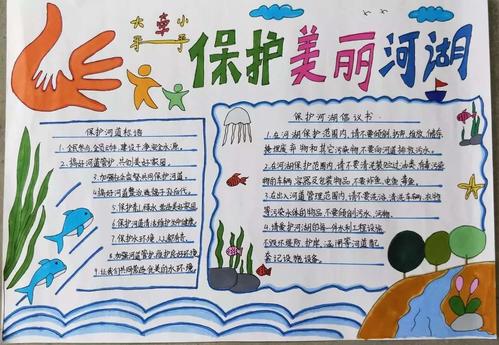 大手牵小手
保护美丽河湖
保护河道标语
1.全民参与,全员动峰,建设千净安全水源。
2.搞好河道管护,共创美好家园。
3.加强社会监督,共同保护河道。
4.搞好河道整治,造福子孙后代。
5.保护青山绿水,营造美好家园
6.保护河道清洁,维护
7.保护水环境,人人都有责。
8.加强河道管护,维护良好环境
9.让我们共同营造优美的水环境。
保护河湖倡议书
1.在河湖保护范围内,请不要倾倒、扔弃、堆放、储存、
掩埋废弃物和其它污染物,不要向河湖排放污水。
2.在河湖保护范围内,请不要清洗装贮过油类、有毒污
染物的车辆、容器及包装物品,不要炸鱼、电鱼、毒鱼。
3.在出入河道管理范围内,请不要洗浴,清洗车辆、衣物
等污染水体的物品,不要倾倒污水、污物。
4.请爱护河湖的每一件水利工程设施,
不毁坏堤防、护岸、涵闸等河道配
套记设物设备。